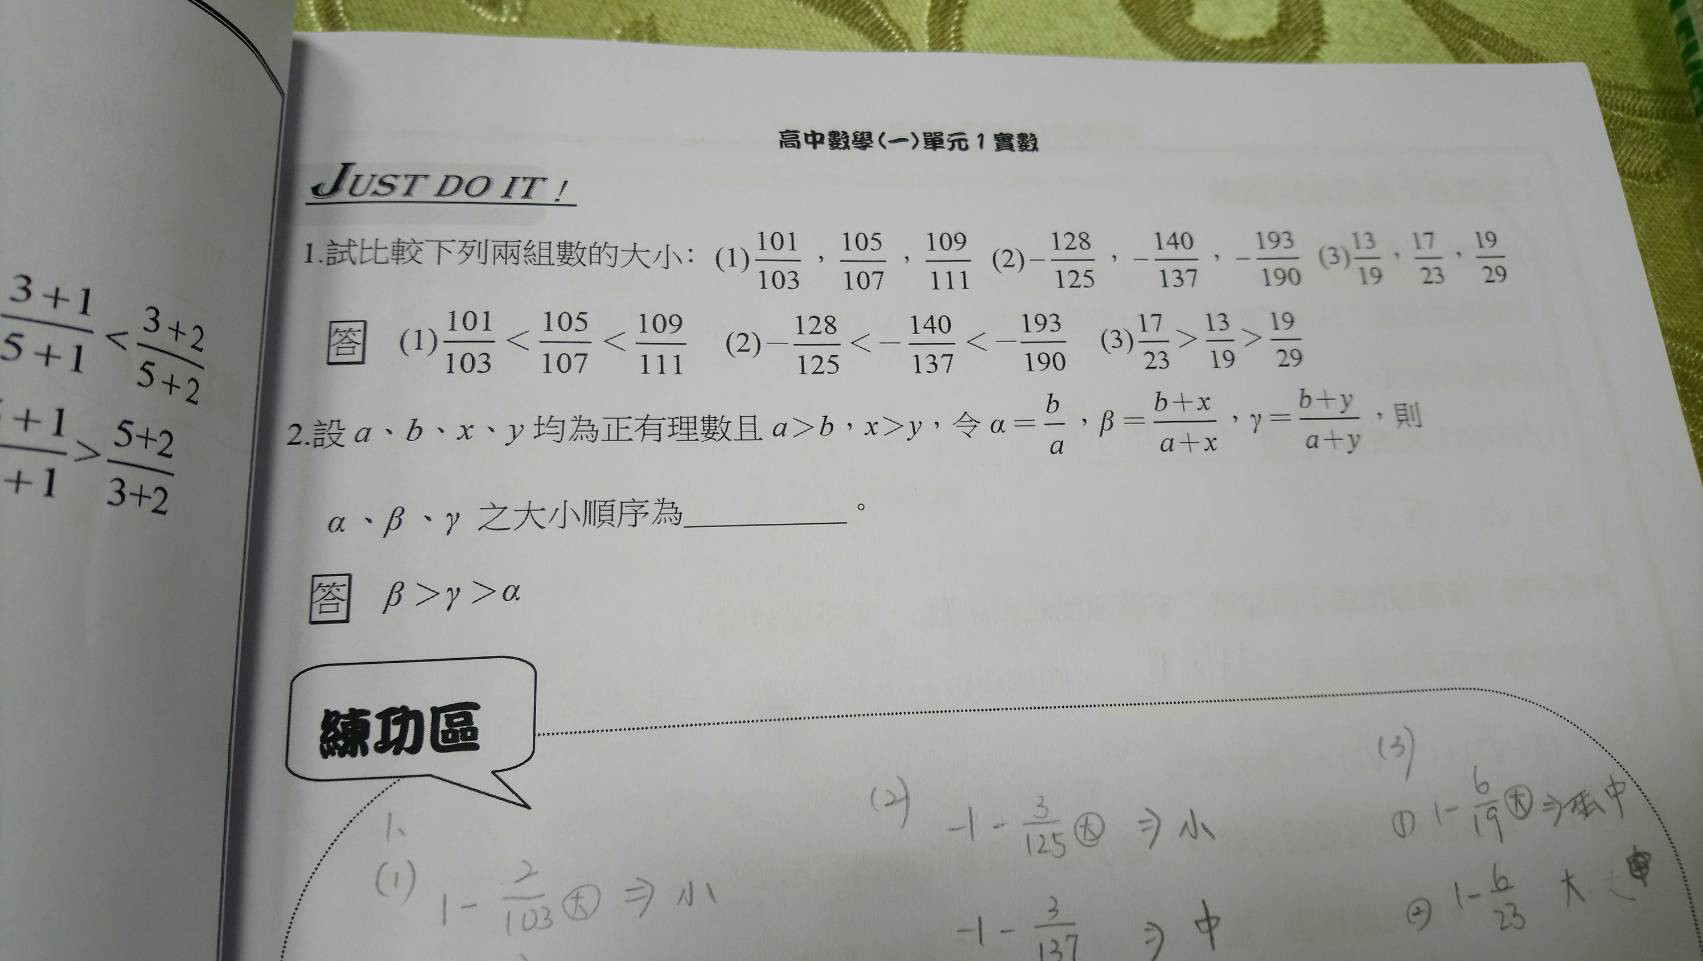 高中數學(一)單元1實數
JUST DO IT!
1.試比較下列兩組數的大小: (1)101/103, 105/107, 109/111 (2)−128/125, −140/137, −193/190 (3)13/19, 17/23, 19/29
答 (1)101/103<105/107<109/111 (2)−128/125<−140/137<−193/190 (3)17/23>13/19>19/29
2.設a、b、x、y均為正有理數且a>b,x>y,令α=b/a,β=(b+x)/(a+x),γ=(b+y)/(a+y),則
α、β、γ 之大小順序為________。
答 β>γ>α
練功區
1、
(1) 1-2/103 大 ⇒ 小
(2) -1-3/125 大 ⇒ 小
-1-3/137 ⇒ 中
(3)
① 1-6/19 大 ⇒ 中
② 1-6/23 大
(3+1)/(5+1)<(3+2)/(5+2)
+1/+1>(5+2)/(3+2)